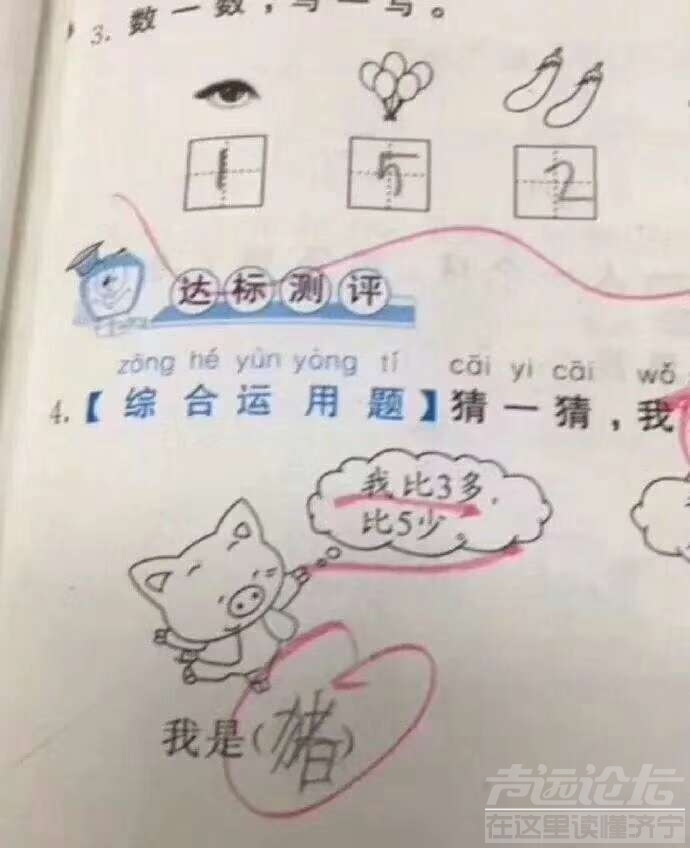 3. 数一数，写一写。
1 5 2
达标测评
zōng hé yùn yòng tí cāi yi cāi wǒ
4.【综合运用题】猜一猜，我
我比3多，
比5少。
我是(猪)
声远论坛
在这里读懂济宁